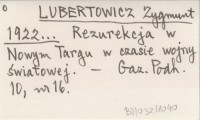 LUBERTOWICZ Zygmunt
1922... Rezurekcja w
Nowym Targu w czasie wojny
światowej. — Gaz. Podh.
10, nr 16.